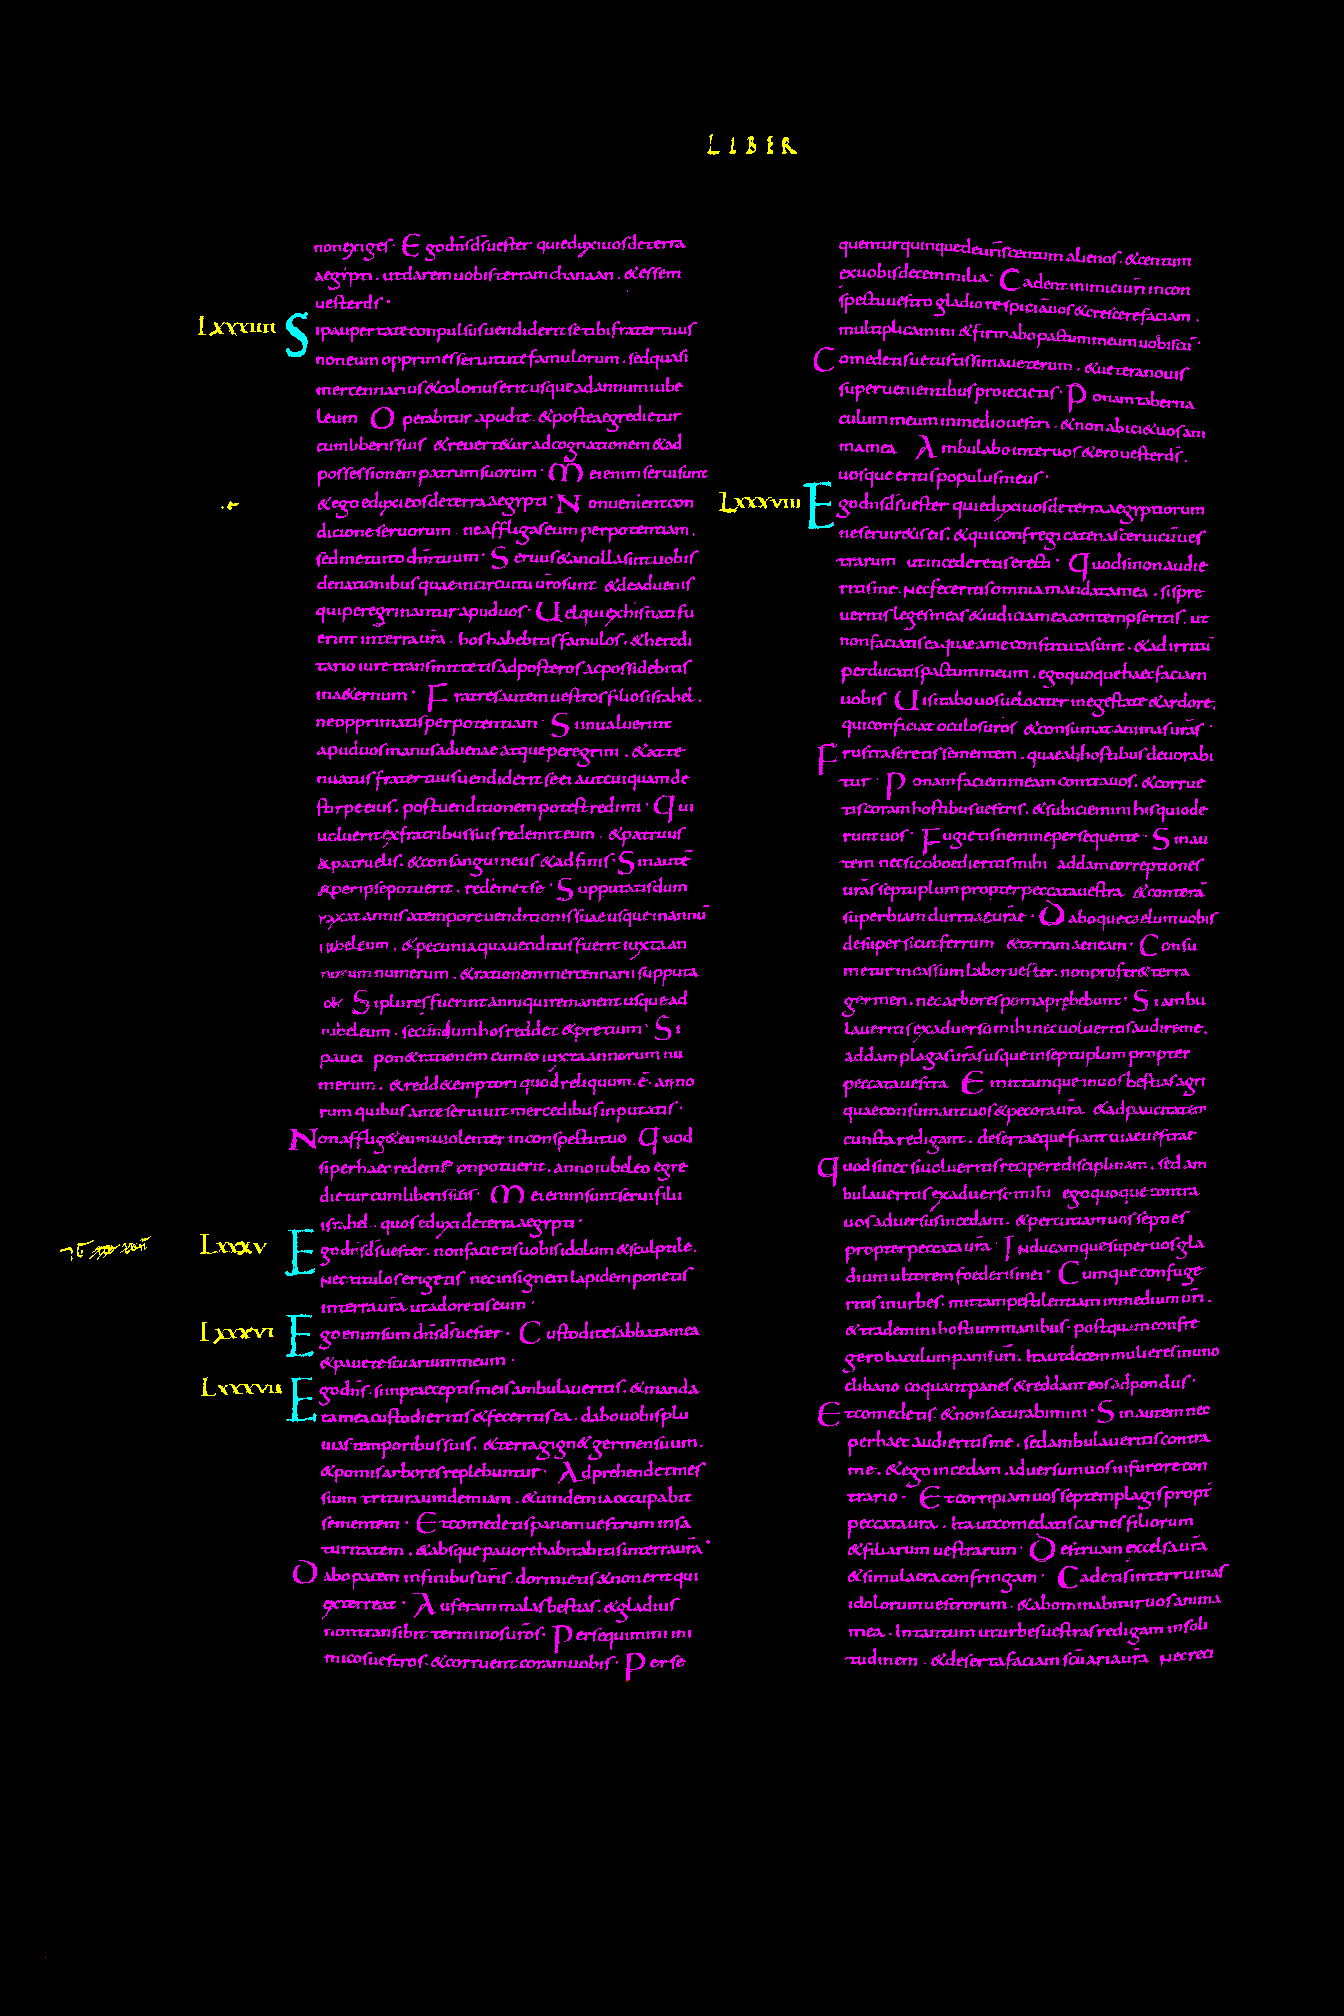 LIBER
non exiges · Ego dn̄s d̄s uester qui eduxi uos de terra
aegypti . ut darem uobis terram chanaan . & essem
uester d̄s ·
LXXXIIII Si paupertate conpulsus uendiderit se tibi frater tuus
non eum opprimes seruitute famulorum . sed quasi
mercennarius & colonus erit usque ad annum iube
leum Operabitur apud te . & postea egredietur
cum liberis suis & reuert&ur ad cognationem & ad
possessionem patrum suorum · Mei enim serui sunt
& ego eduxi eos de terra aegypti · Non uenient con
dicione seruorum ne affligas eum per potentiam .
sed metuito d̄m tuum · Seruus & ancilla sint uobis
de nationibus quae in circuitu ūro sunt & de aduenis
qui peregrinantur apud uos · Uel qui ex his nati fu
erint in terra ūra . hos habebitis famulos . & heredi
tario iure transmittetis ad posteros ac possidebitis
in a&ernum · Fratres autem uestros filios israhel .
ne opprimatis per potentiam · Si inualuerint
apud uos manus aduenae atque peregrini . & atte
nuatus frater tuus uendiderit se ei aut cuiquam de
stirpe eius . post uenditionem potest redimi · Qui
uoluerit ex fratribus suis redemet eum & patruus
& patruelis . & consanguineus & adfinis · Sin autē
& per ipse potuerit . redemet se · Supputatis dum
taxat annis a tempore uenditionis suae usque in annū
iubeleum . & pecunia qua uenditus fuerit iuxta an
norum numerum . & rationem mercennarii supputa
Si plures fuerint anni qui remanent usque ad
iubeleum . secundum hos redd& & pretium · Si
pauci pon& rationem cum eo iuxta annorum nu
merum . & redd& emptori quod reliquum . ē . anno
rum quibus ante seruiuit mercedibus inputatis ·
Non afflig& eum uiolenter in conspectu tuo Quod
si per haec redemi non potuerit . anno iubeleo egre
dietur cum liberis suis · Mei enim sunt serui filii
israhel . quos eduxi de terra aegypti ·
LXXXV Ego dn̄s d̄s uester . non facietis uobis idolum & sculptile .
nec titulos erigetis nec insignem lapidem ponetis
in terra ūra ut adoretis eum ·
LXXXVI Ego enim sum dn̄s d̄s uester · Custodite sabbata mea
& pauete sc̄uarium meum ·
LXXXVII Ego dn̄s . si in praeceptis meis ambulaueritis . & manda
ta mea custodieritis & feceritis ea . dabo uobis plu
uias temporibus suis . & terra gign& germen suum .
& pomis arbores replebuntur · Adprehendet mes
sium tritura uindemiam . & uindemia occupabit
sementem · Et comedetis panem uestrum in sa
turitatem . & absque pauore habitabitis in terra ūra ·
Dabo pacem in finibus ūris . dormietis & non erit qui
exterreat · Auferam malas bestias . & gladius
non transibit terminos ūros · Persequimini ini
micos uestros . & corruent coram uobis · Perse
quentur quinque de ūris centum alienos . & centum
ex uobis decem milia · Cadent inimici ūri in con
spectu uestro gladio respiciā uos & crescere faciam .
multiplicamini & firmabo pactum meum uobiscū ·
Comedetis uetustissima ueterum . & uetera nouis
superuenientibus proiecietis · Ponam taberna
culum meum in medio uestri . & non abici& uos ani
ma mea Ambulabo inter uos & ero uester d̄s .
uosque eritis populus meus ·
LXXXVIII Ego dn̄s d̄s uester qui eduxi uos de terra aegyptiorum
ne seruir&is eis . & qui confregi catenas ceruicū ues
trarum ut incederetis erecti · Quod si non audie
ritis me . nec feceritis omnia mandata mea . si spre
ueritis leges meas & iudicia mea contempseritis . ut
non faciatis ea quae a me constituta sunt . & ad irritū
perducatis pactum meum . ego quoque haec faciam
uobis · Uisitabo uos uelociter in egestate & ardore .
qui conficiat oculos ūros & consumat animas ūras ·
Frustra seretis sementem . quae ab hostibus deuorabi
tur · Ponam faciem meam contra uos . & corrue
tis coram hostibus uestris . & subiciemini his qui ode
runt uos · Fugietis nemine persequente · Sin au
tem nec sic oboedieritis mihi addam correptiones
ūras septuplum propter peccata uestra & conterā
superbiam duritiae ūrae · Daboque caelum uobis
desuper sicut ferrum & terram aeneam · Consu
metur incassum labor uester . non profer& terra
germen . nec arbores poma prebebunt · Si ambu
laueritis ex aduerso mihi nec uolueritis audire me .
addam plagas ūras usque in septuplum propter
peccata uestra Emittamque in uos bestias agri
quae consumant uos & pecora ūra & ad paucitatem
cuncta redigant . desertaeque fiant uiae uestrae
Quod si nec sic uolueritis recipere disciplinam . sed am
bulaueritis ex aduerso mihi ego quoque contra
uos aduersus incedam . & percutiam uos septies
propter peccata ūra · Inducamque super uos gla
dium ultorem foederis mei · Cumque confuge
ritis in urbes . mittam pestilentiam in medium ūri .
& trademini hostium manibus . postquam confre
gero baculum panis ūri . Ita ut decem mulieres in uno
clibano coquant panes & reddant eos ad pondus ·
Et comedetis . & non saturabimini · Sin autem nec
per haec audieritis me . sed ambulaueritis contra
me . & ego incedam . aduersum uos in furore con
trario · Et corripiam uos septem plagis propt̄
peccata ūra . Ita ut comedatis carnes filiorum
& filiarum uestrarum · Destruam excelsa ūra
& simulacra confringam · Cadetis inter ruinas
idolorum uestrorum . & abominabitur uos anima
mea . In tantum ut urbes uestras redigam in soli
tudinem . & deserta faciam sc̄uaria ūra nec reci